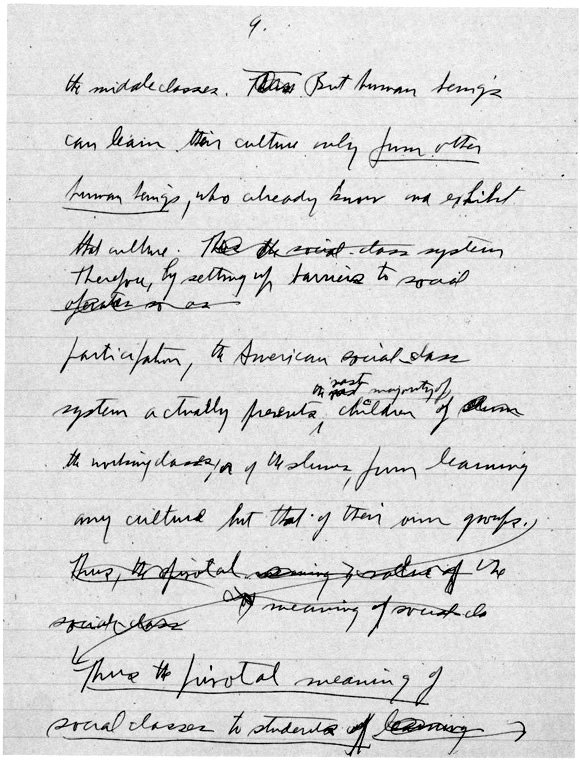 9.
the middle classes. But human beings
can learn their culture only from other
human beings, who already know and exhibit
that culture. Thus the social-class system
Therefore, by setting up barriers to social
operates so as
participation, the American social-class
the vast majority of
system actually prevents children of
the working classes, or of the slums, from learning
any culture but that of their own groups.
Thus, the pivotal meaning of the
meaning of social cla
social class
Thus the pivotal meaning of
social classes to students of learning